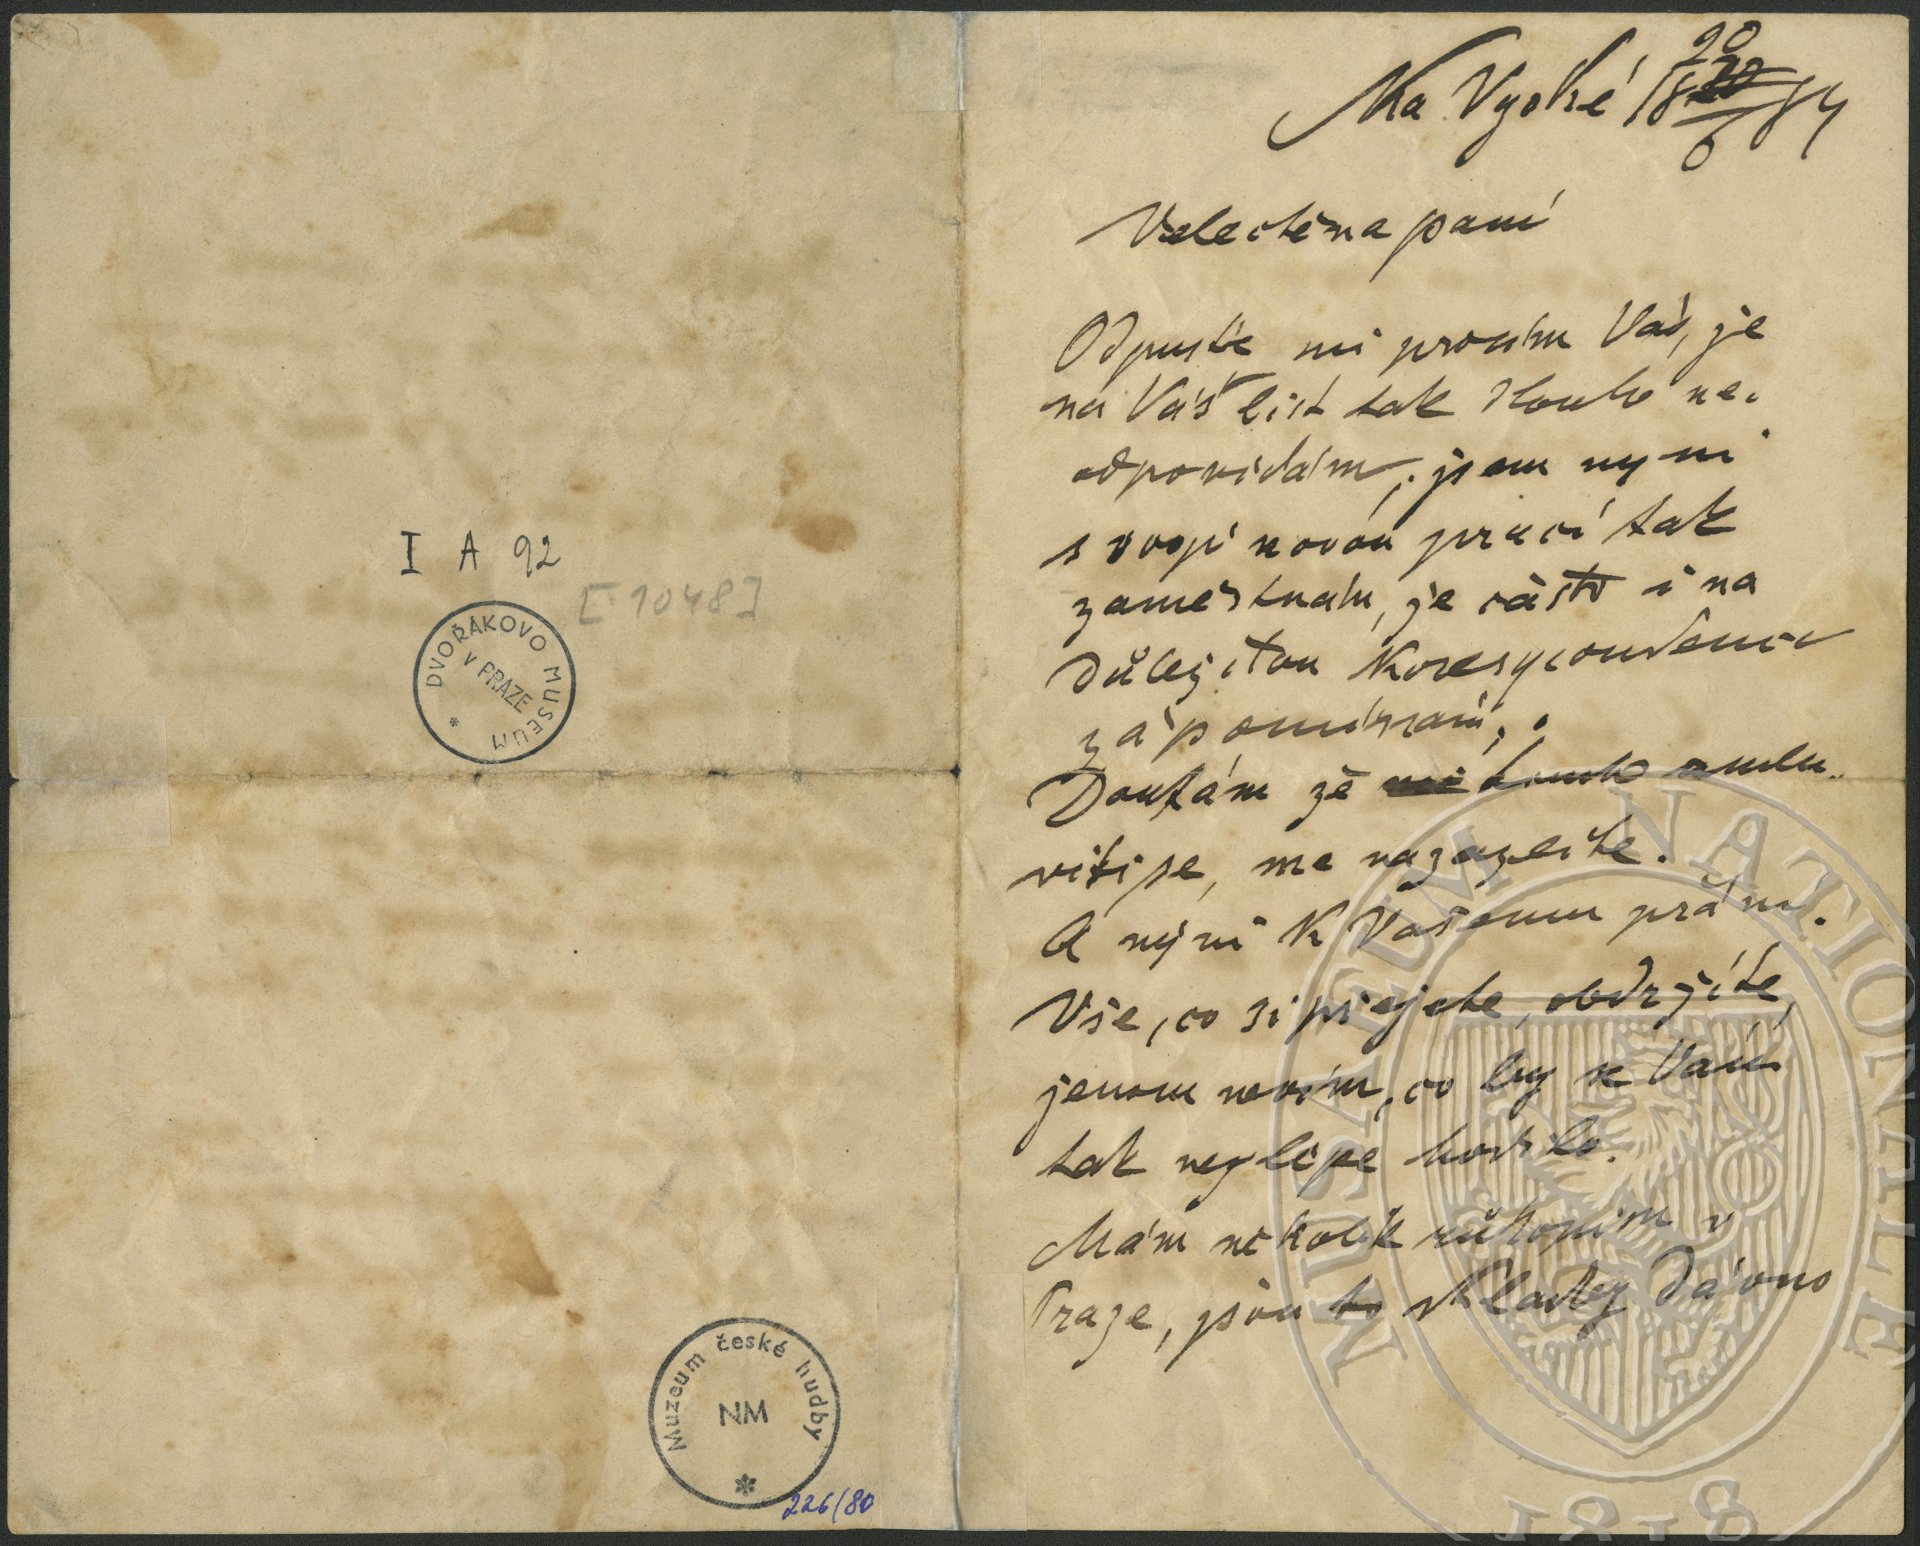 I A 92
[1048]
DVOŘÁKOVO MUSEUM
V PRAZE
Muzeum české hudby
NM
226/80
Na Vysoké 18 20/6 84
Velectěna paní
Odpusťe mi prosím Vás, že
na Váš list tak dlouho ne-
odpovidám, jsem nyni
svoji novou praci tak
zaměstnán, že části i na
důležitou Korespondenci
zápomínám.
Doufám že tomu
A nýni K Vašemu přáni.
Vše, co si přejete, obdržíte,
jenom nevím, co by se Vám
tak nejlépe hodilo.
Mám několik rukopisů v
Praze, jsou to skladby dávno
MUSAEUM NATIONALE
1818